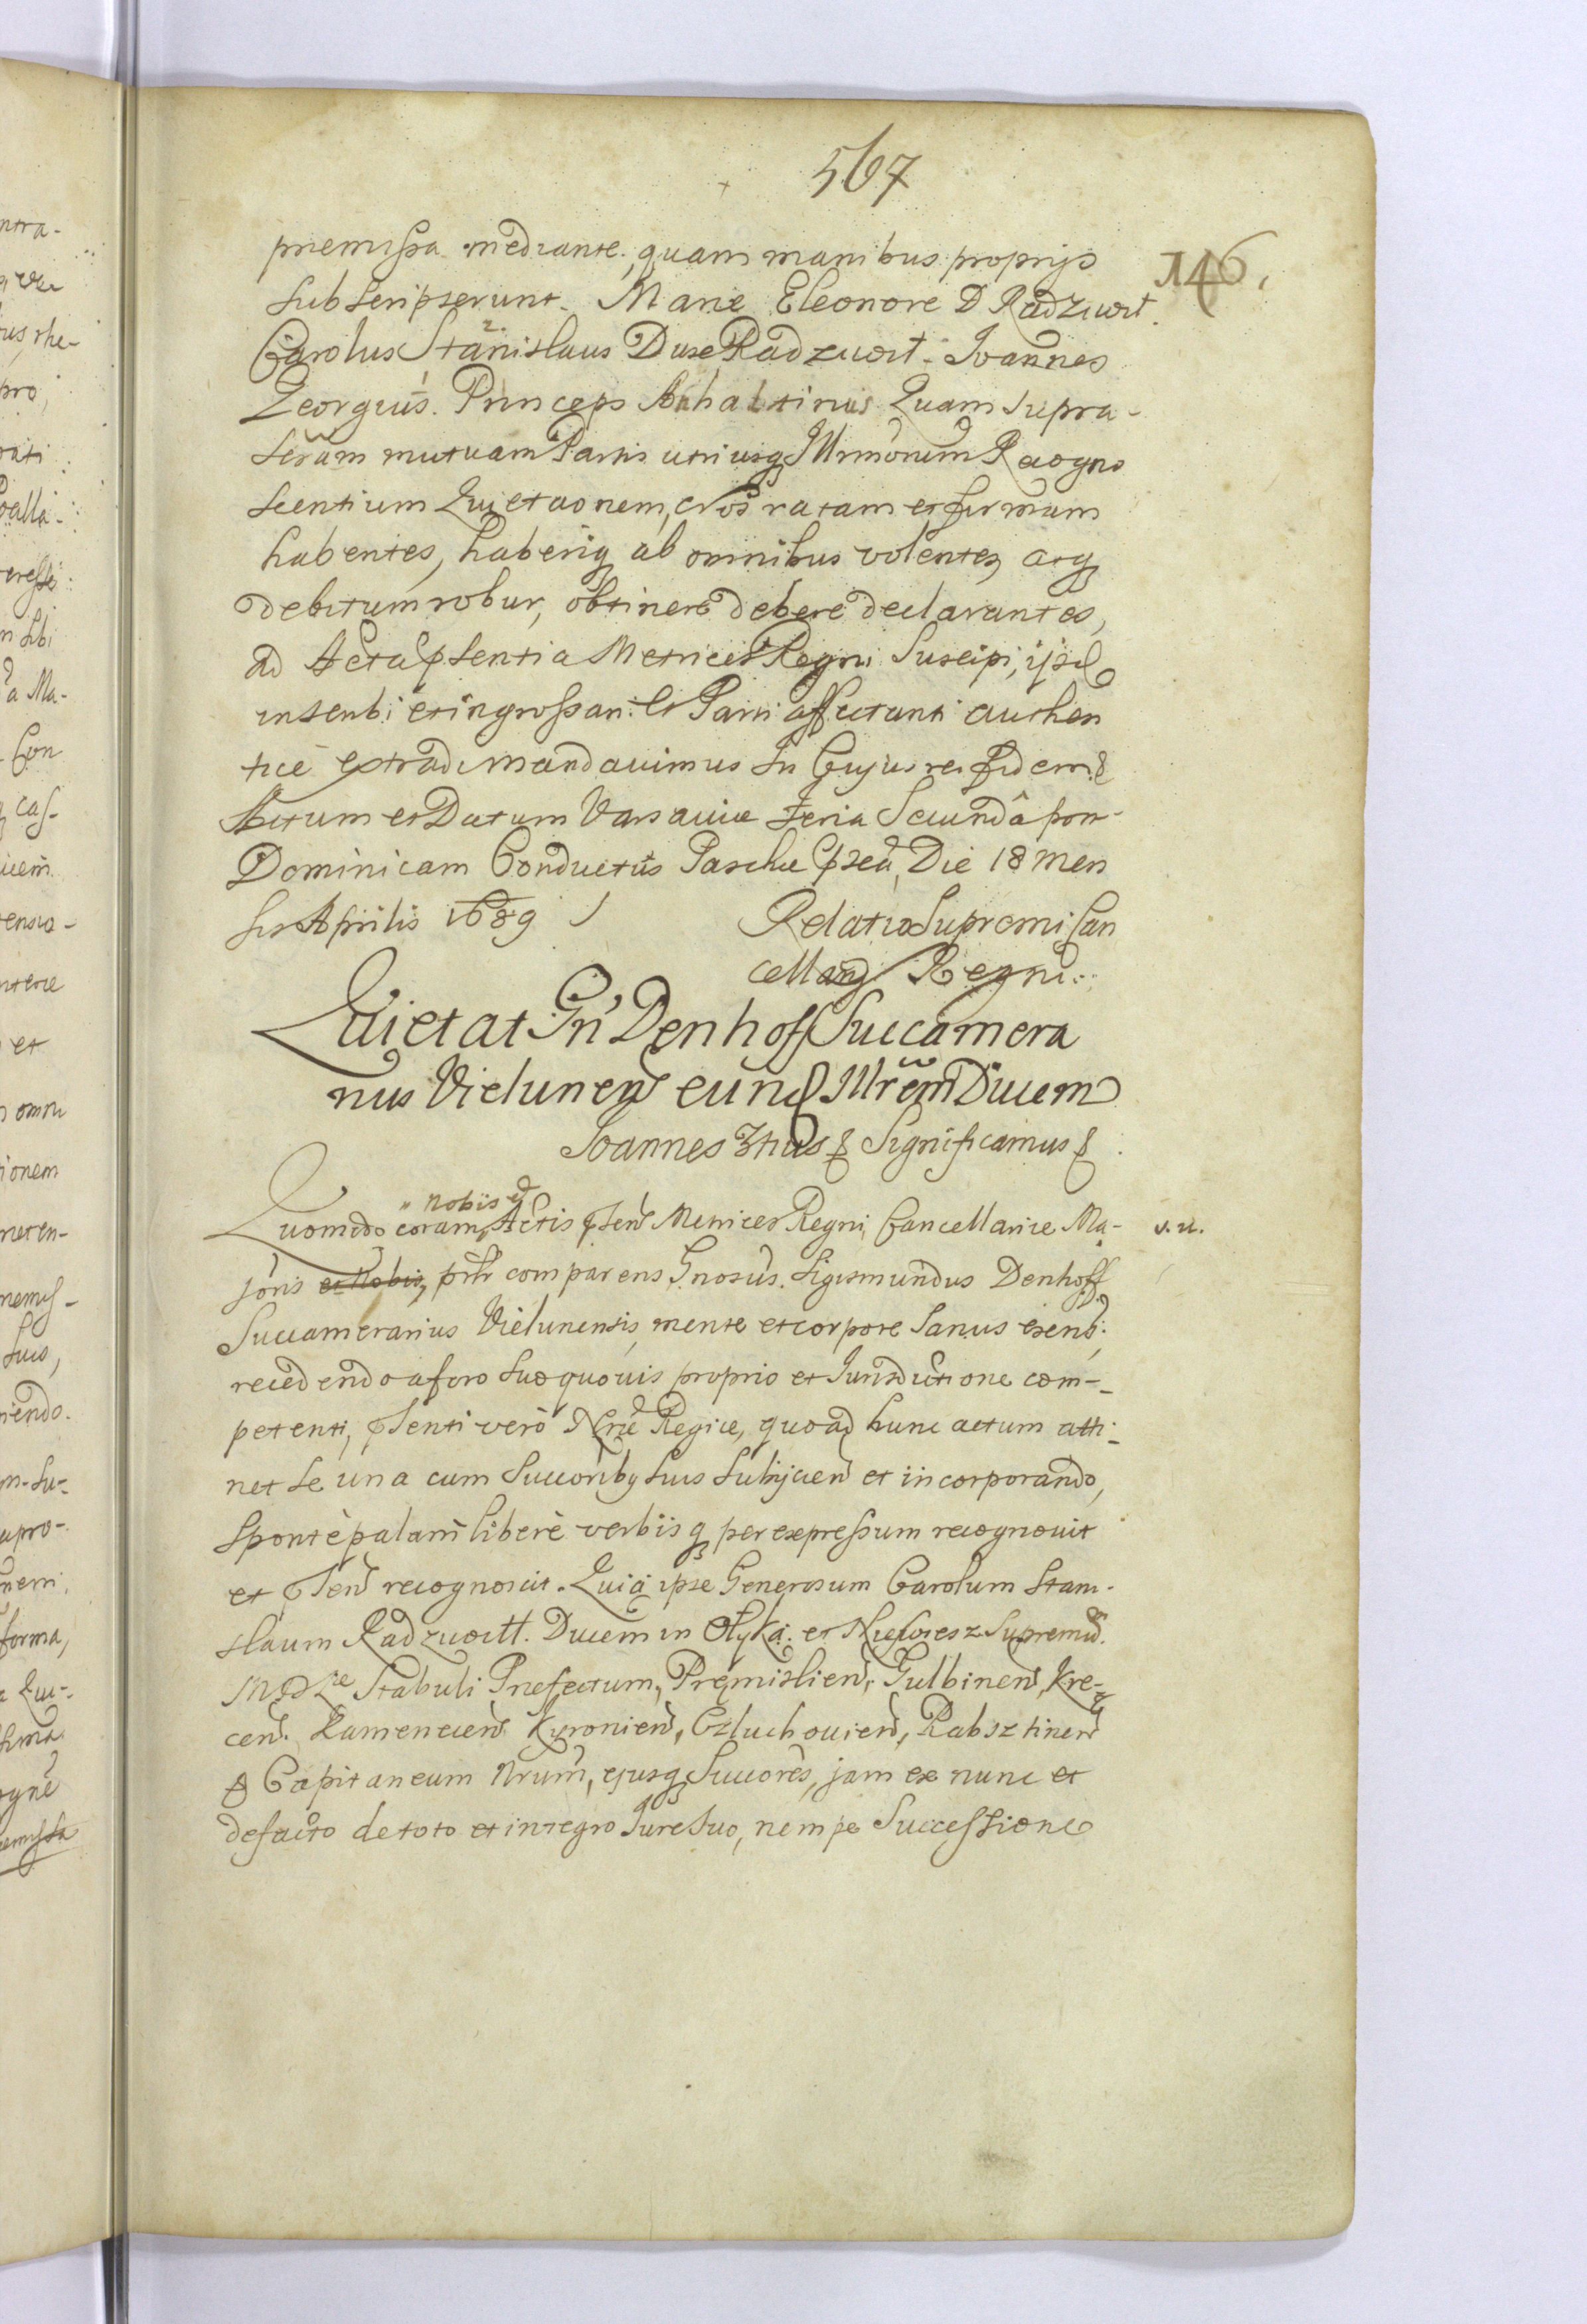 567
146.
præmissa mediante, quam manibus proprijs
subscripserunt. Marie Eleonore D Radziwił.
Carolus Stanislaus Dux Radziwił. Joannes
Georgius. Princeps Anhaltinus Quam supra-
scr̃am mutuam Partis utriusq Illrmorum Recogno
scentium Quietaonem, Nos ratam et firmam
habentes, haberiq ab omnibus volentes, atq
debitum robur, obtinere debere declarantes,
ad Acta pñsentia Metrices Regni Suscipi, ijsd
inscribi et ingrossari. Et Parti affectanti authen
ticè extradi mandavimus In Cujus rei fidem &
Actum et Datum Varsaviæ feria Secundâ post
Dominicam Conductus Paschæ Die 18 men
sis Aprilis 1689
Relatio Supremi Can
cellarij Regni.
Quietat Gn Denhoff Succamera
rius Vielunens eund Illrem Ducem
Joannes 3tius & Significamus &
nobis et
Quomodo coram Actis pñsen Metrices Regni Cancellariæ Ma-
v. u.
joris et Nobis, comparens Gnosus. Sigismundus Denhoff
Succamerarius Vielunensis, mente et corpore sanus exens.
recedendo a foro suo quovis proprio et Jurisdictione com-
petenti, pñsenti verò Nrae Regiæ, quoad hunc actum atti-
net se una cum Succoribq suis subijcien et incorporando,
Spontè palam liberè verbis q per expressum recognovit
et pñsen recognoscit. Quià ipse Generosum Carolum Stani-
slaum Radziwill. Ducem in Olyka. et Nieswiesz Supremu.
M D L Stabuli Præfectum, Præmislien, Gulbinen, Kre-
cen. Kamenecen Człuchovien, Rabsztinen
& Capitaneum Nrum, ejusq Succores, jam ex nunc et
de facto de toto et integro Jure suo, nempe Successione